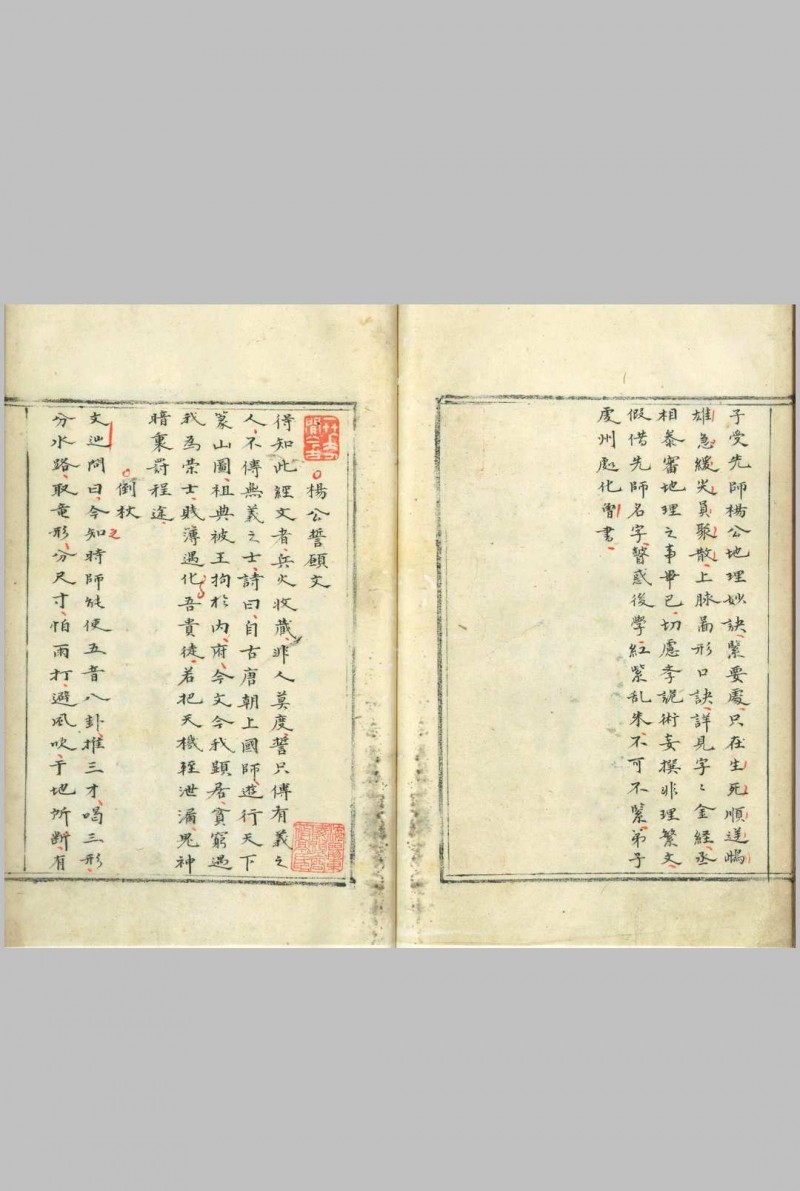 子受先師楊公地理妙訣緊要處只在生死順逆
雄急緩尖員聚散上脉啚形口訣詳見字〻金經丞
相泰審地理之事畢已切慮李詭術妄撰非理繁文
假借先師名字瞽惑後學紅紫乱朱不可不緊弟子
虔州處化曾書
楊公誓願文
得知此經文者兵火收藏非人莫度誓只傳有義之
人不傳無義之士詩曰自古唐朝上國師遊行天下
篆山圖祖典被王拘於內府今文令我顕居貧窮遇
我為荣士賎薄遇化吾貴徒若把天機輊泄漏鬼神
暗裏罸程途
倒杖
文辿問曰今知之時師能使五音八卦推三才喝三形
分水路取竜形分尺寸怕雨打避風吹于地斨断有